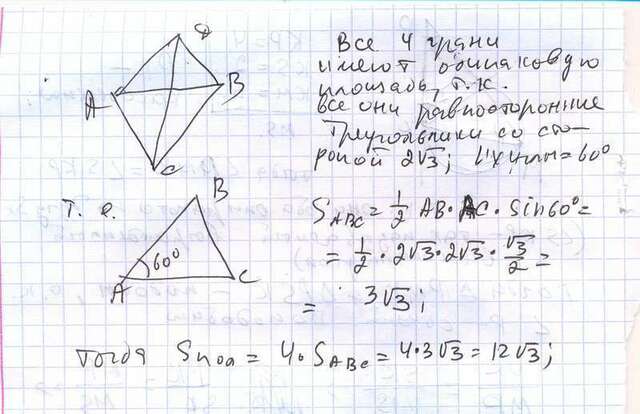 D
A
B
C
Все 4 грани
имеют одинаковую
площадь, т.к.
все они равносторонние
треугольники со сто-
роной 2√3; углы=60°
т. е.
B
60°
A
C
S_ABC = 1/2 AB · AC · sin60° =
= 1/2 · 2√3 · 2√3 · √3/2 =
= 3√3;
тогда Sпов = 4 · S_ABC = 4·3√3 = 12√3;